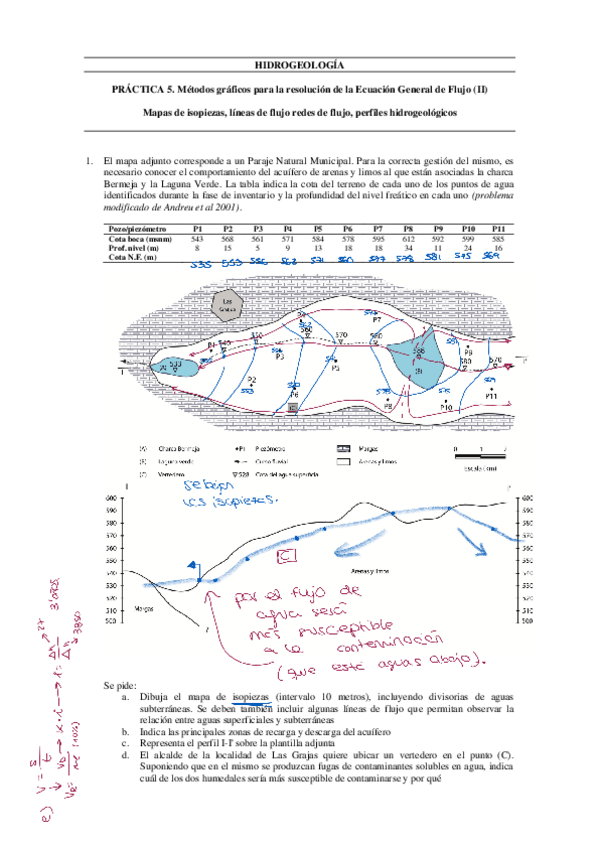 HIDROGEOLOGÍA
PRÁCTICA 5. Métodos gráficos para la resolución de la Ecuación General de Flujo (II)
Mapas de isopiezas, líneas de flujo redes de flujo, perfiles hidrogeológicos
1. El mapa adjunto corresponde a un Paraje Natural Municipal. Para la correcta gestión del mismo, es
necesario conocer el comportamiento del acuífero de arenas y limos al que están asociadas la charca
Bermeja y la Laguna Verde. La tabla indica la cota del terreno de cada uno de los puntos de agua
identificados durante la fase de inventario y la profundidad del nivel freático en cada uno (problema
modificado de Andreu et al 2001).
Pozo/piezómetro P1 P2 P3 P4 P5 P6 P7 P8 P9 P10 P11
Cota boca (msnm) 543 568 561 571 584 578 595 612 592 599 585
Prof. nivel (m) 8 15 5 9 13 18 18 34 11 24 16
Cota N.F. (m) 535 553 556 562 571 560 577 578 581 575 569
Las
Grajas
P4
P7
580
570
580
P9
580
570
P3
P2
P6
P8
P10
P11
I
I'
(A) Charca Bermeja
P1 Piezómetro
Margas
(B) Laguna verde
Curso fluvial
Arenas y limos
(C) Vertedero
528 Cota del agua superficial
0 1 2
Escala (km)
se dibujan
las isopiezas.
I
I'
600
590
580
570
560
550
540
530
510
500
C
Margas
Arenas y limos
por el flujo de
agua será
más susceptible
a la contaminación
(que esté aguas abajo).
Se pide:
a. Dibuja el mapa de isopiezas (intervalo 10 metros), incluyendo divisorias de aguas
subterráneas. Se deben también incluir algunas líneas de flujo que permitan observar la
relación entre aguas superficiales y subterráneas
b. Indica las principales zonas de recarga y descarga del acuífero
c. Representa el perfil I-I' sobre la plantilla adjunta
d. El alcalde de la localidad de Las Grajas quiere ubicar un vertedero en el punto (C).
Suponiendo que en el mismo se produzcan fugas de contaminantes solubles en agua, indica
cuál de los dos humedales sería más susceptible de contaminarse y por qué
e)